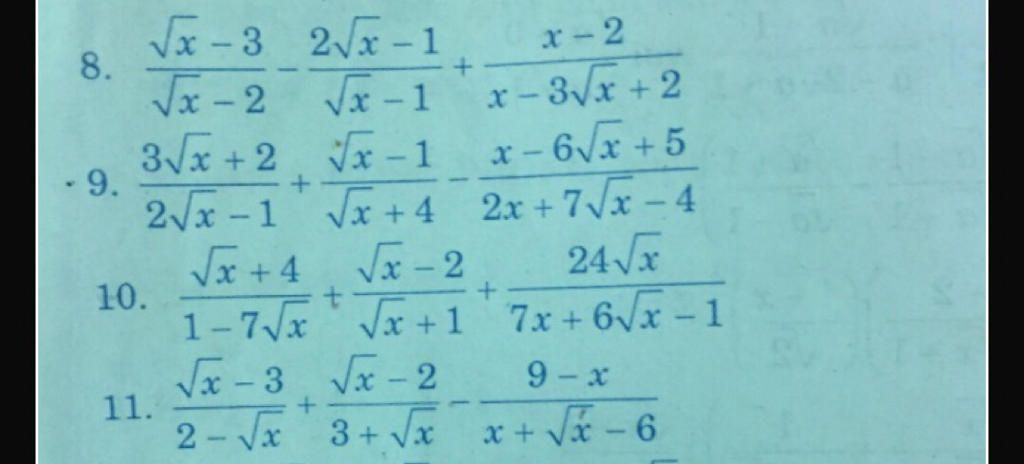 8. (√x − 3)/(√x − 2) − (2√x − 1)/(√x − 1) + (x − 2)/(x − 3√x + 2)
9. (3√x + 2)/(2√x − 1) + (√x − 1)/(√x + 4) − (x − 6√x + 5)/(2x + 7√x − 4)
10. (√x + 4)/(1 − 7√x) + (√x − 2)/(√x + 1) + (24√x)/(7x + 6√x − 1)
11. (√x − 3)/(2 − √x) + (√x − 2)/(3 + √x) − (9 − x)/(x + √x − 6)